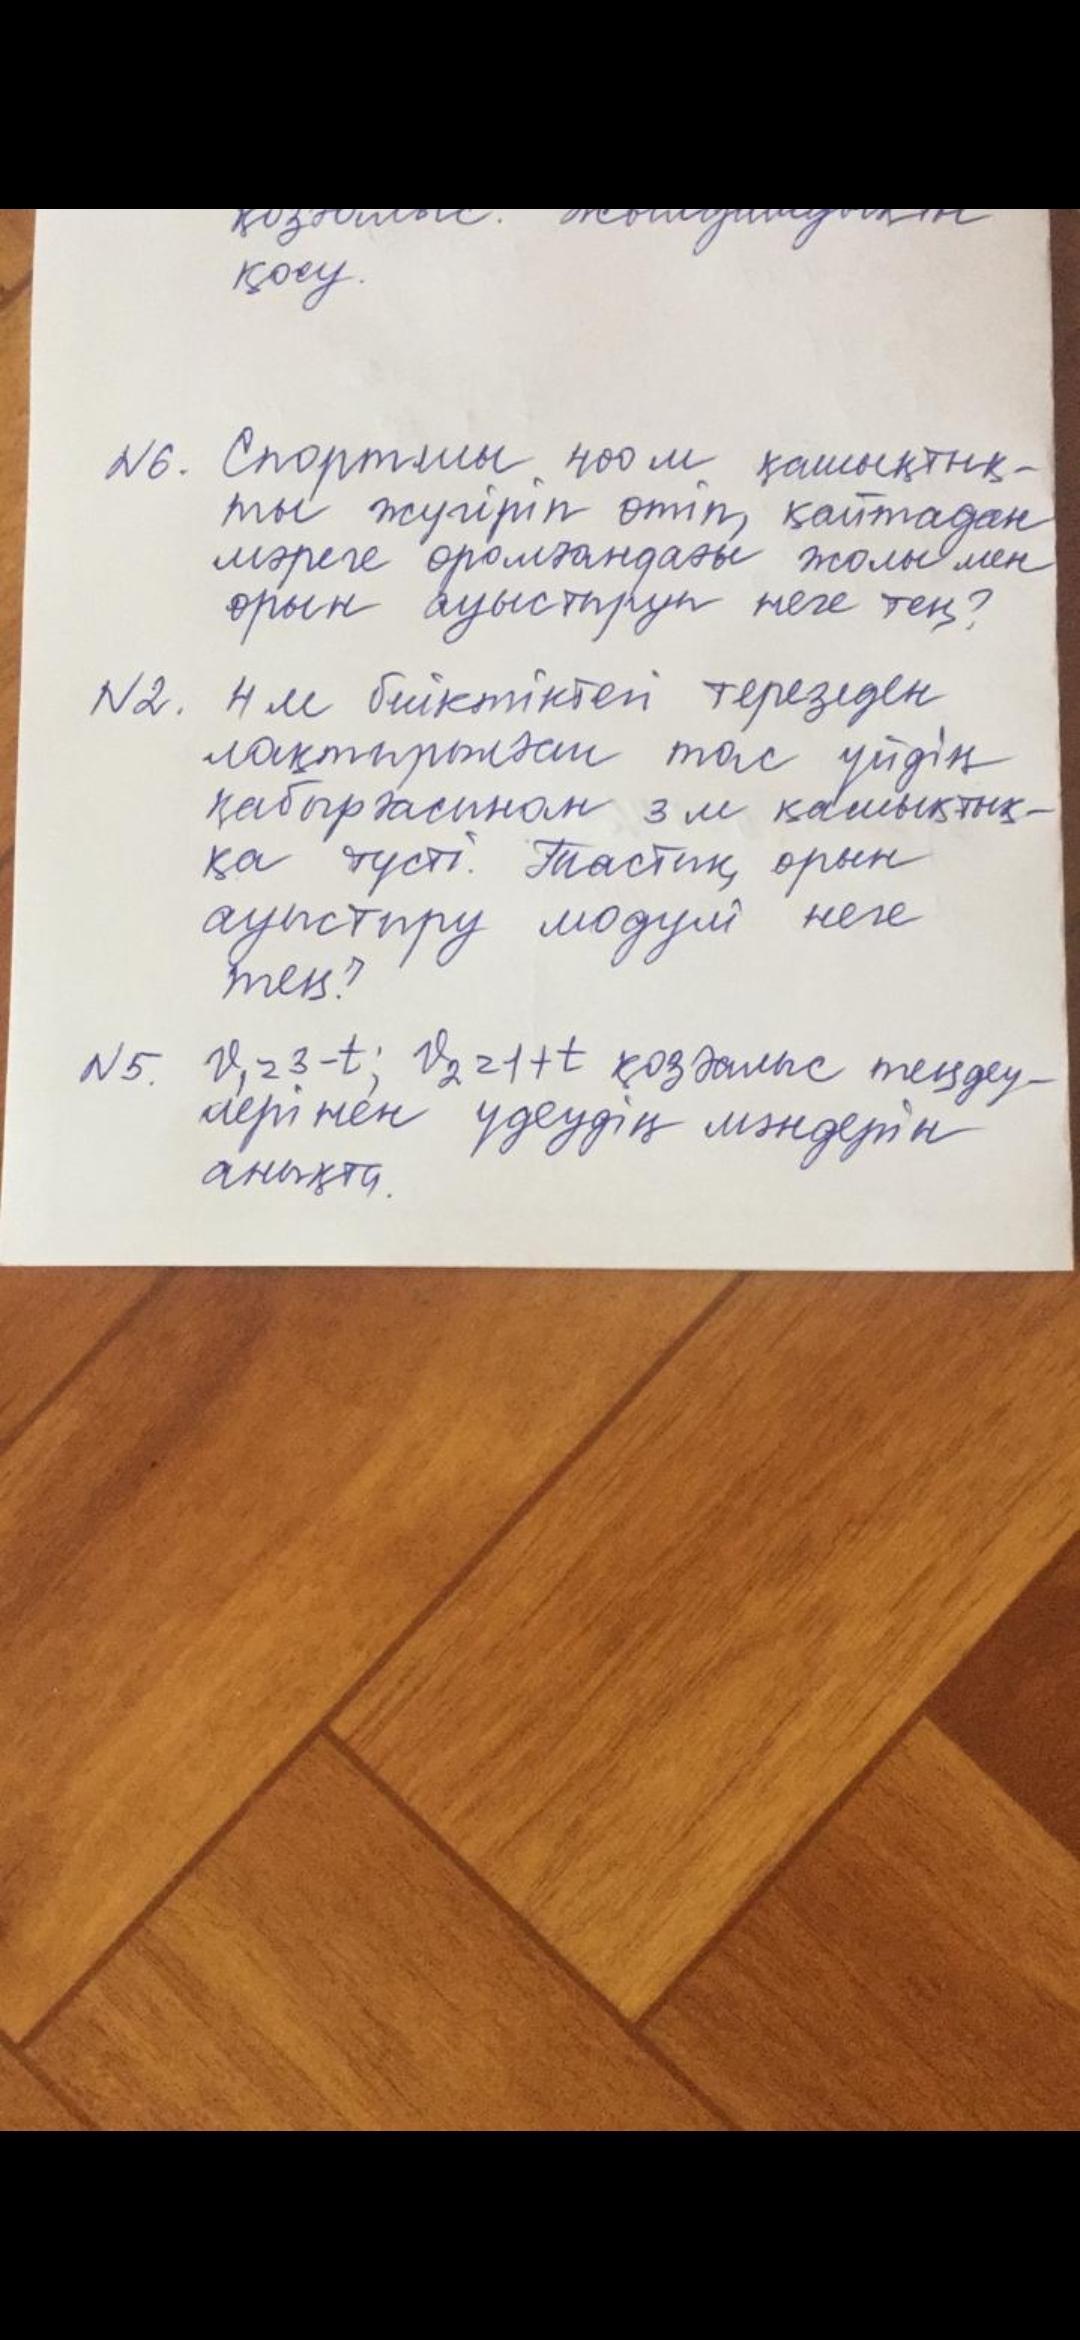 қозғалыс. Жылдамдықтн
қосу.
N6. Спортшы 400 м қашықтық-
ты жүгіріп өтіп, қайтадан
мәреге оромғандағы жолы мен
орын ауыстыруы неге тең?
N2. 4 м биіктіктегі терезеден
лақтырылған тас үйдің
қабырғасынан 3 м қашықтық-
қа түсті. Тастың орын
ауыстыру модулі неге
тең?
N5. V₁=3-t; V₂=1+t қозғалыс теңдеу-
лерінен үдеудің мәндерін
анықта.